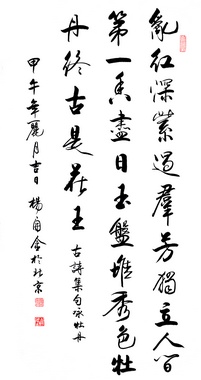 亂红深紫過羣芳獨立人間
第一香盡日玉盤堆秀色牡
丹終古是花王 古詩集句咏牡丹
甲午年麗月吉日 楊 於北京